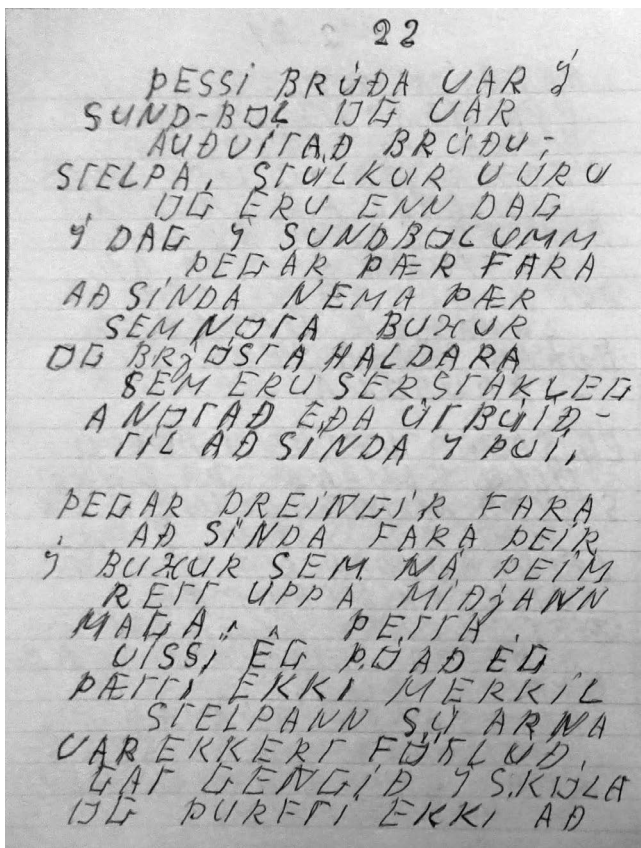 22
ÞESSI BRÚÐA VAR Í
SUND-BOL OG VAR
AUÐVITAÐ BRÚÐU-
STELPA, STÚLKUR VORU
OG ERU ENN DAG
Í DAG Í SUNDBOLUMM
ÞEGAR ÞÆR FARA
AÐ SINDA NEMA ÞÆR
SEM NOTA BUXUR
OG BRJÓSTAHALDARA
SEM ERU SERSTAKLEG
A NOTAÐ EÐA ÚTBÚIÐ-
TIL AÐ SINDA Í ÞVÍ,
ÞEGAR DREINGIR FARA
AÐ SINDA FARA ÞEIR
Í BUXUR SEM NÁ ÞEIM
RETT UPPÁ MIÐJANN
MAGA, ÞETTA
VISSI ÉG ÞÓAÐ ÉG
ÞÆTTI EKKI MERKIL
STELPANN SÚ ARNA
VAR EKKERT FÖTLUÐ,
GAT GENGIÐ Í SKÓLA
OG ÞURFTI EKKI AÐ